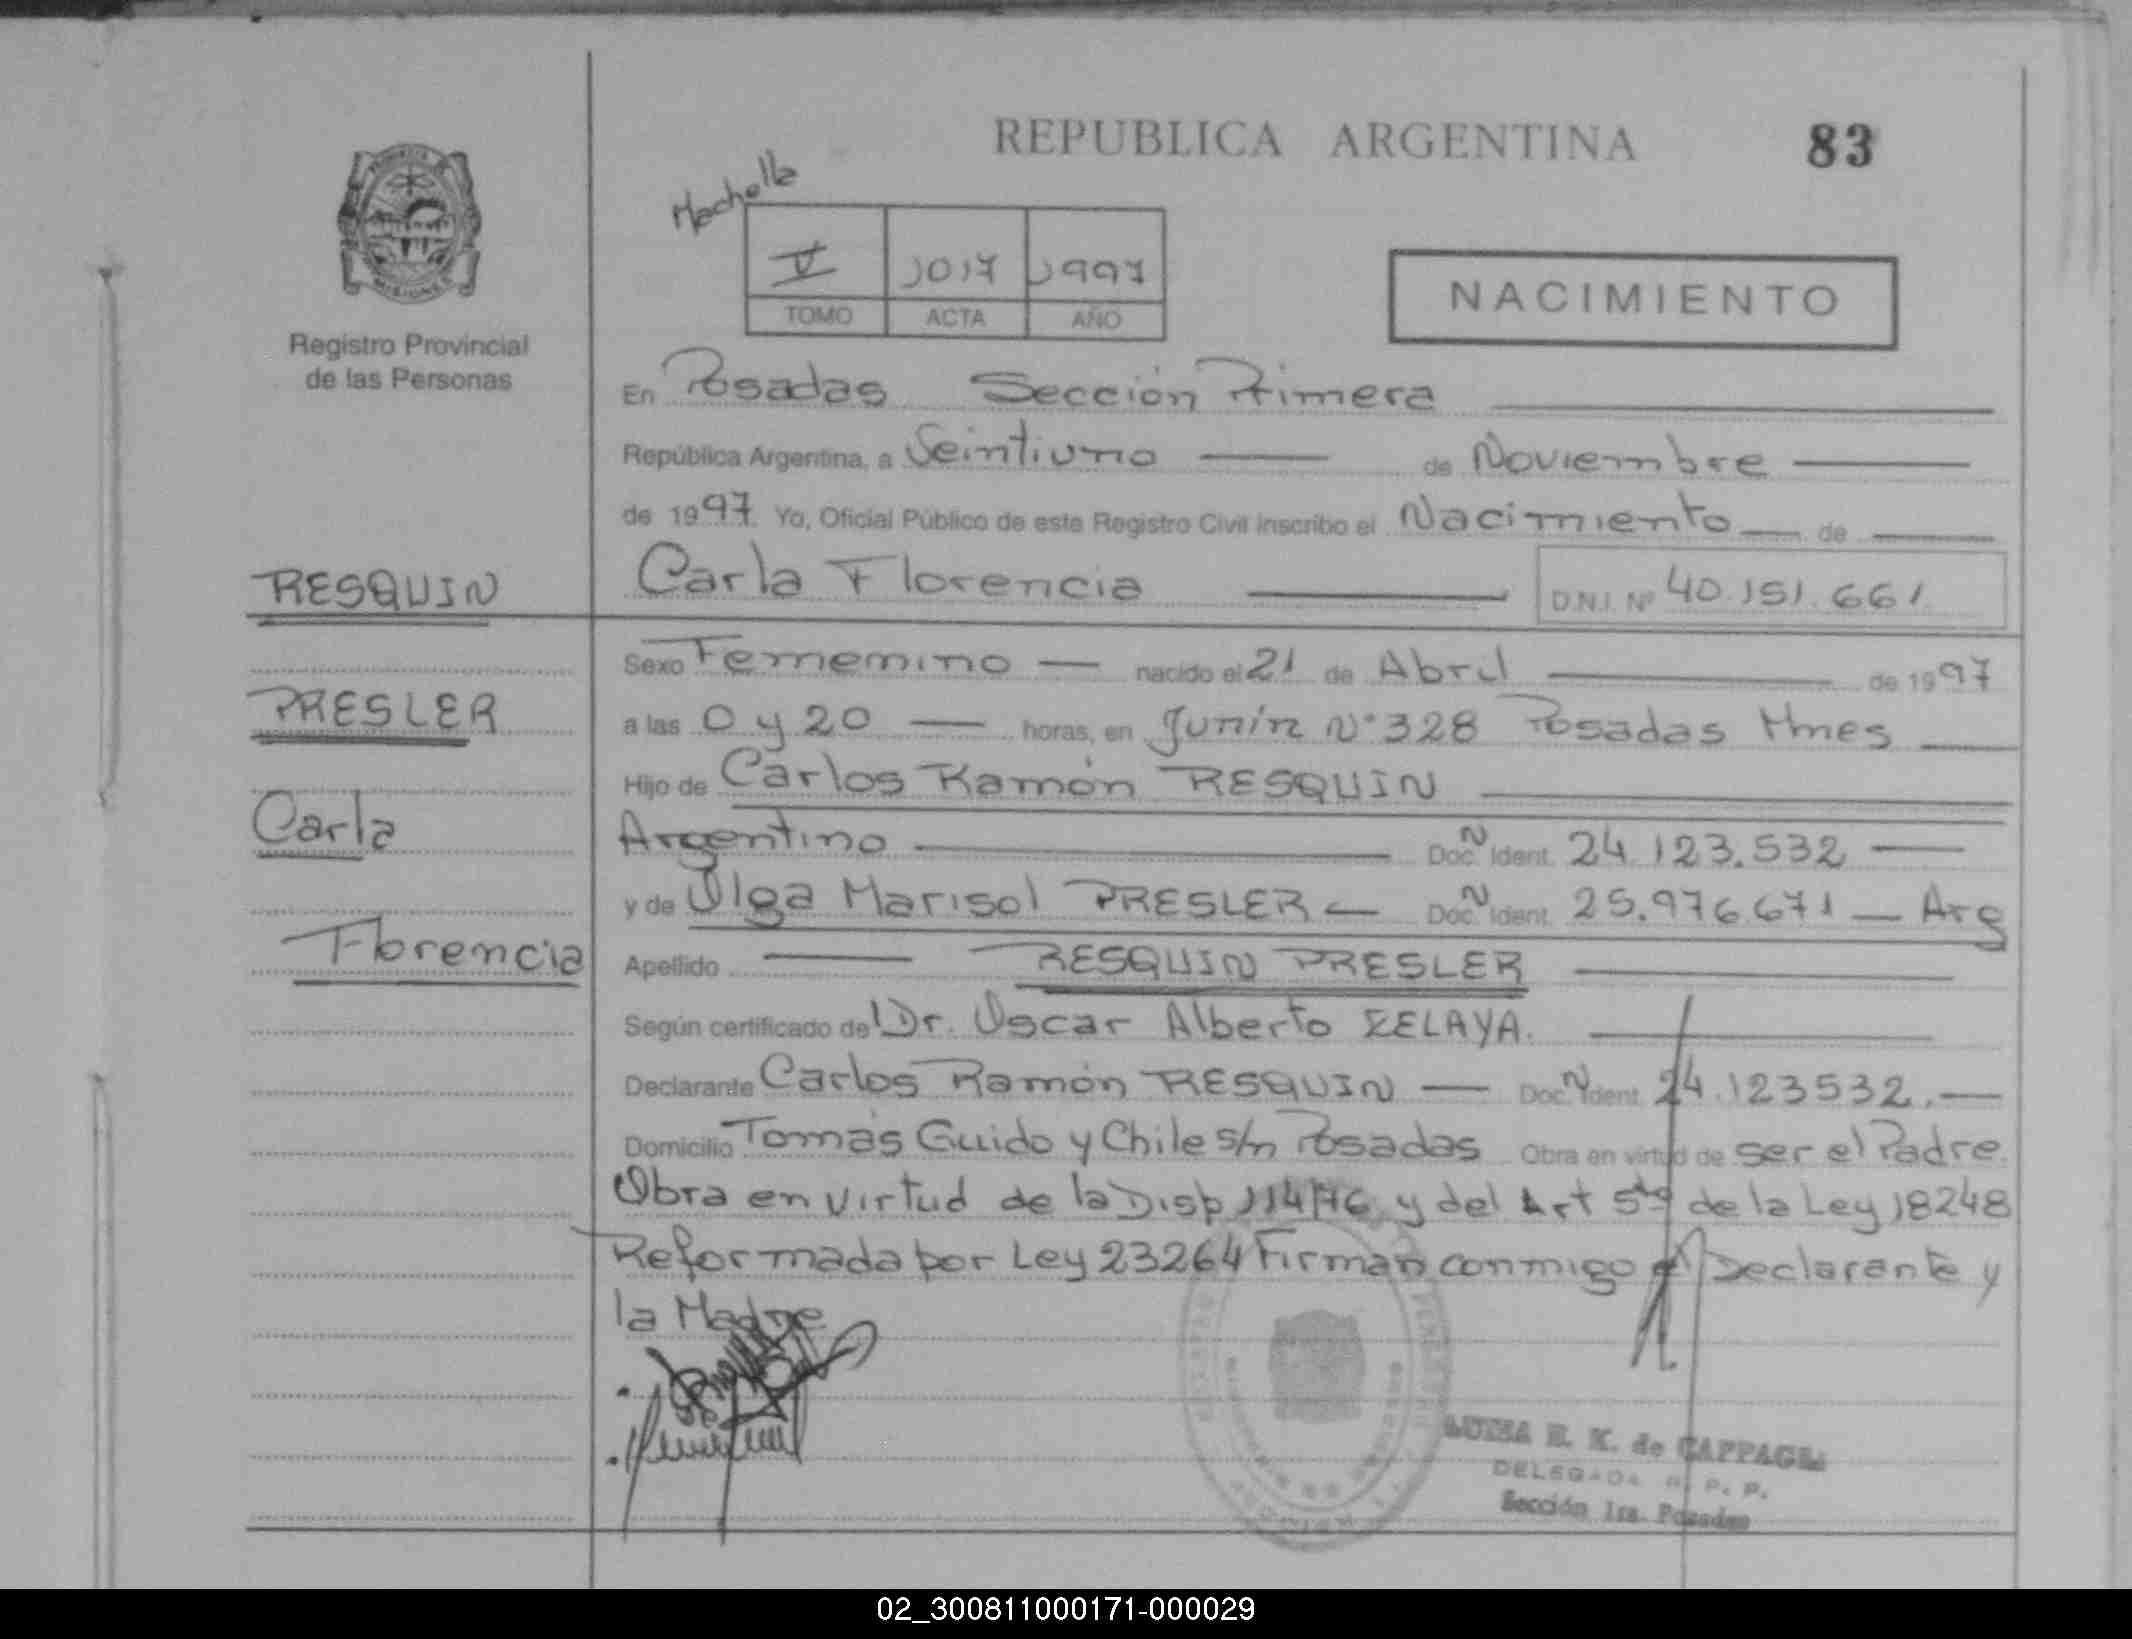 REPUBLICA ARGENTINA 83
PROVINCIA DE
MISIONES
Registro Provincial
de las Personas
V 1017 1997
TOMO ACTA AÑO
NACIMIENTO
En Posadas Sección Primera
República Argentina, a Veintiuno de Noviembre
de 1997 Yo, Oficial Público de este Registro Civil inscribo el Nacimiento de
RESQUIN
PRESLER
Carla
Florencia
Carla Florencia D.N.I. Nº 40.151.661
Sexo Femenino nacido el 21 de Abril de 1997
a las 0 y 20 horas, en Junín Nº 328 Posadas Mnes
Hijo de Carlos Ramón RESQUIN
Argentino Doc. N Ident. 24.123.532
y de Olga Marisol PRESLER Doc. N Ident. 25.976.671 Arg
Apellido RESQUIN PRESLER
Según certificado del Dr. Oscar Alberto ZELAYA.
Declarante Carlos Ramón RESQUIN Doc. N Ident. 24.123532.
Domicilio Tomás Guido y Chile s/n Posadas Obra en virtud de ser el Padre.
Obra en virtud de la Disp 114/76 y del Art 5to de la Ley 18248
Reformada por Ley 23264 Firman conmigo el Declarante y
la Madre
LUISA R. K. de CAPPAGLI
DELEGADA R. P. P.
Sección 1ra. Posadas
02_300811000171-000029